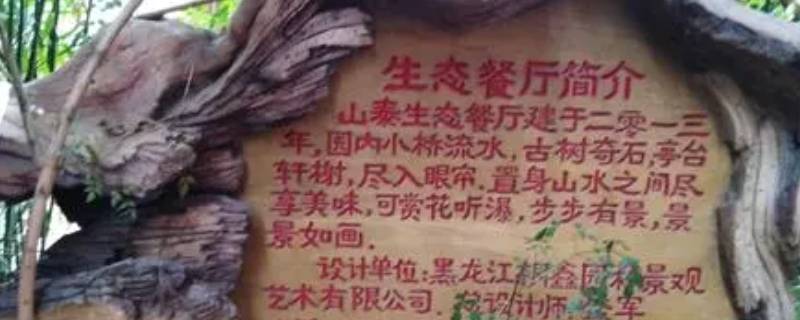 生态餐厅简介
山泰生态餐厅建于二零一三
年,园内小桥流水,古树奇石,亭台
轩榭,尽入眼帘.置身山水之间尽
享美味,可赏花听瀑,步步有景,景
景如画.
设计单位:黑龙江 鑫园林景观
艺术有限公司. 设计师 军